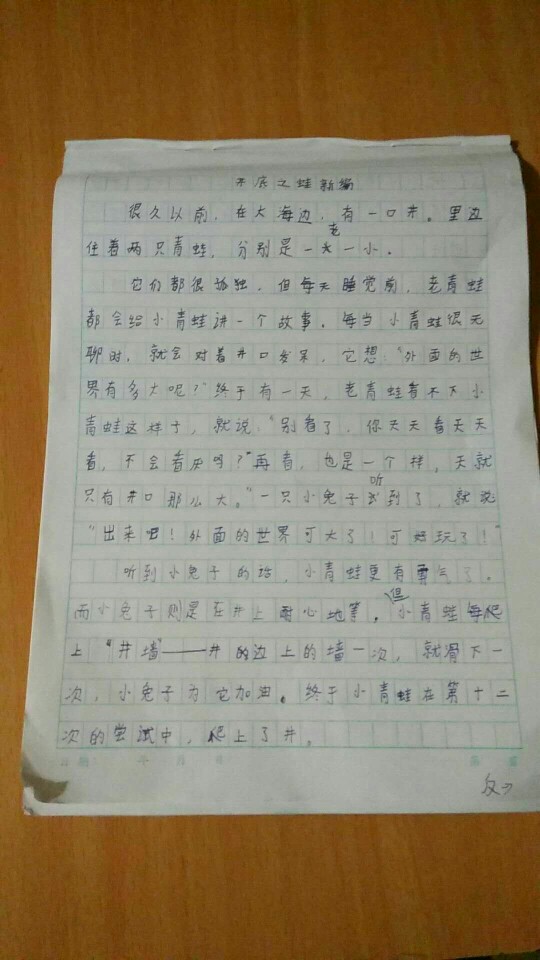 井底之蛙新编
很久以前，在大海边，有一口井。里边
住着两只青蛙，分别是一老一小。
它们都很孤独，但每天睡觉前，老青蛙
都会给小青蛙讲一个故事。每当小青蛙很无
聊时，就会对着井口发呆，它想：“外面的世
界有多大呢？”终于有一天，老青蛙看不下小
青蛙这样子，就说：“别看了，你天天看天天
看，不会看厌吗？”再看，也是一个样，天就
只有井口那么大。”一只小兔子听到了，就说
“出来吧！外面的世界可大了！可好玩了！”
听到小兔子的话，小青蛙更有勇气了。
而小兔子则是在井上耐心地等。但小青蛙每爬
上“井墙”——井的边上的墙一次，就滑下一
次，小兔子为它加油。终于小青蛙在第十二
次的尝试中，爬上了井。
反→